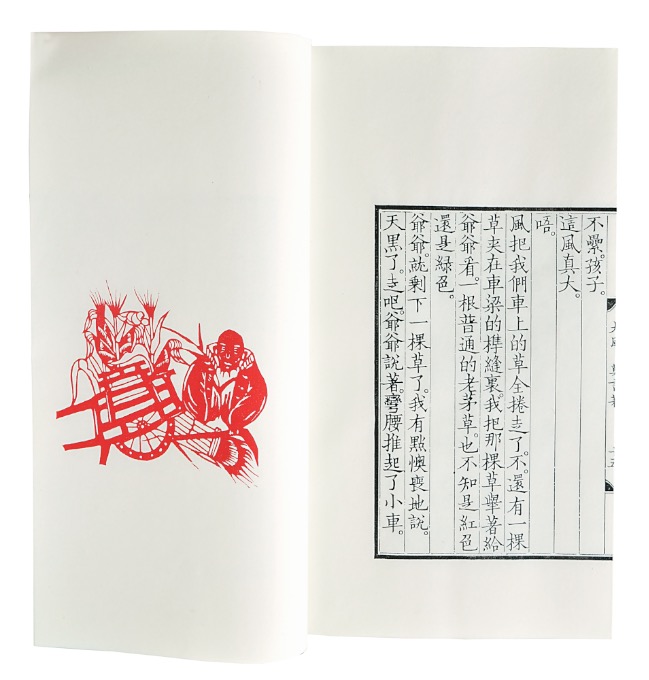 不纍。孩子。
這風真大。
唔。
風把我們車上的草全捲走了。不。還有一棵
草夾在車梁的榫縫裏。我把那棵草舉著給
爺爺看。一根普通的老茅草。也不知是紅色
還是綠色。
爺爺。就剩下一棵草了。我有點懊喪地說。
天黑了。走吧。爺爺說著。彎腰推起了小車。